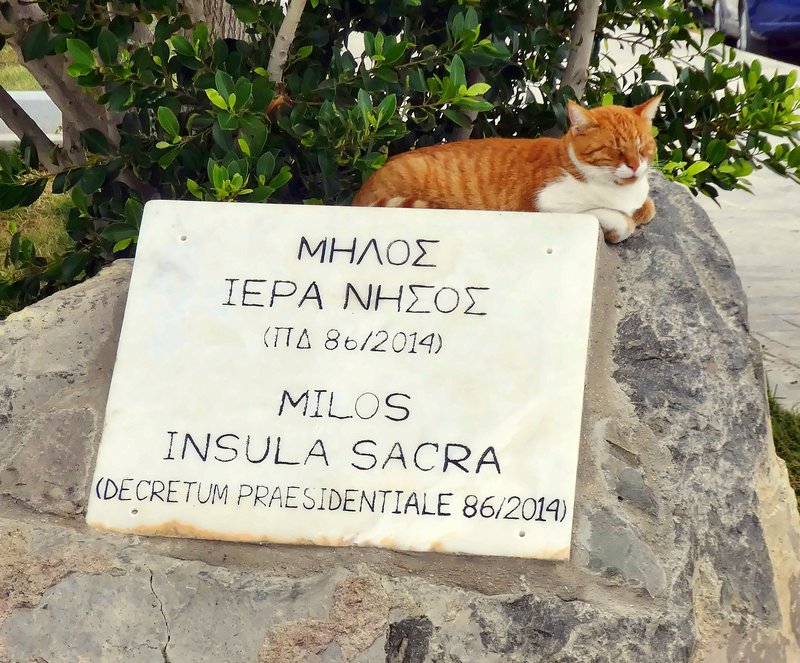 ΜΗΛΟΣ
ΙΕΡΑ ΝΗΣΟΣ
(ΠΔ 86/2014)
MILOS
INSULA SACRA
(DECRETUM PRAESIDENTIALE 86/2014)